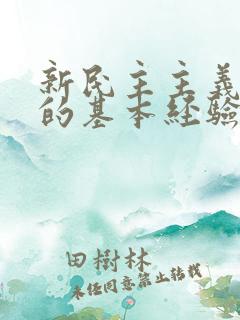 新民主主義
的基本經驗
田樹林
未經同意禁止轉載